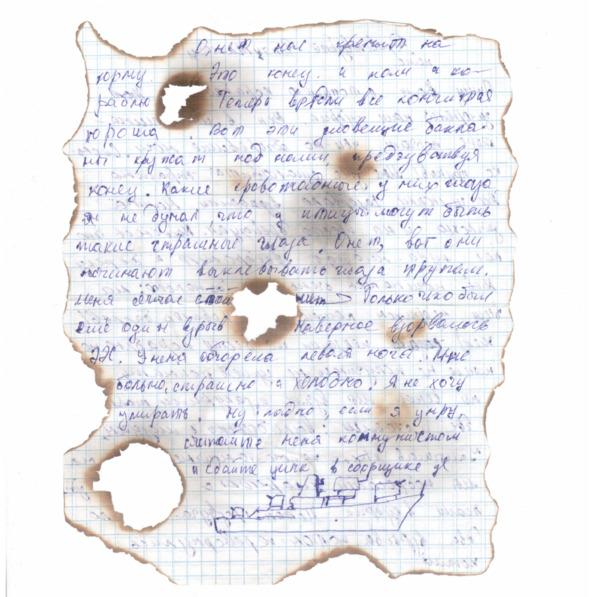 О нет, нас кренит на
корму. Это конец. и нам и ко-
раблю Теперь врядли все кончится
хорошо. Вот эти зловещие бакла-
ны кружат над нами предчувствуя
конец. Какие кровожадные у них глаза
я не думал, что у птицы могут быть
такие страшные глаза. О нет, вот они
начинают выклевывать глаза трупам.
меня сейчас Только что был
еще один взрыв наверное взорвалось
У меня обгорела левая нога. Мне
больно, страшно и холодно. Я не хочу
умирать. Ну ладно, если я умру,
считайте меня коммунистом
и сдайте цинк в сборщике